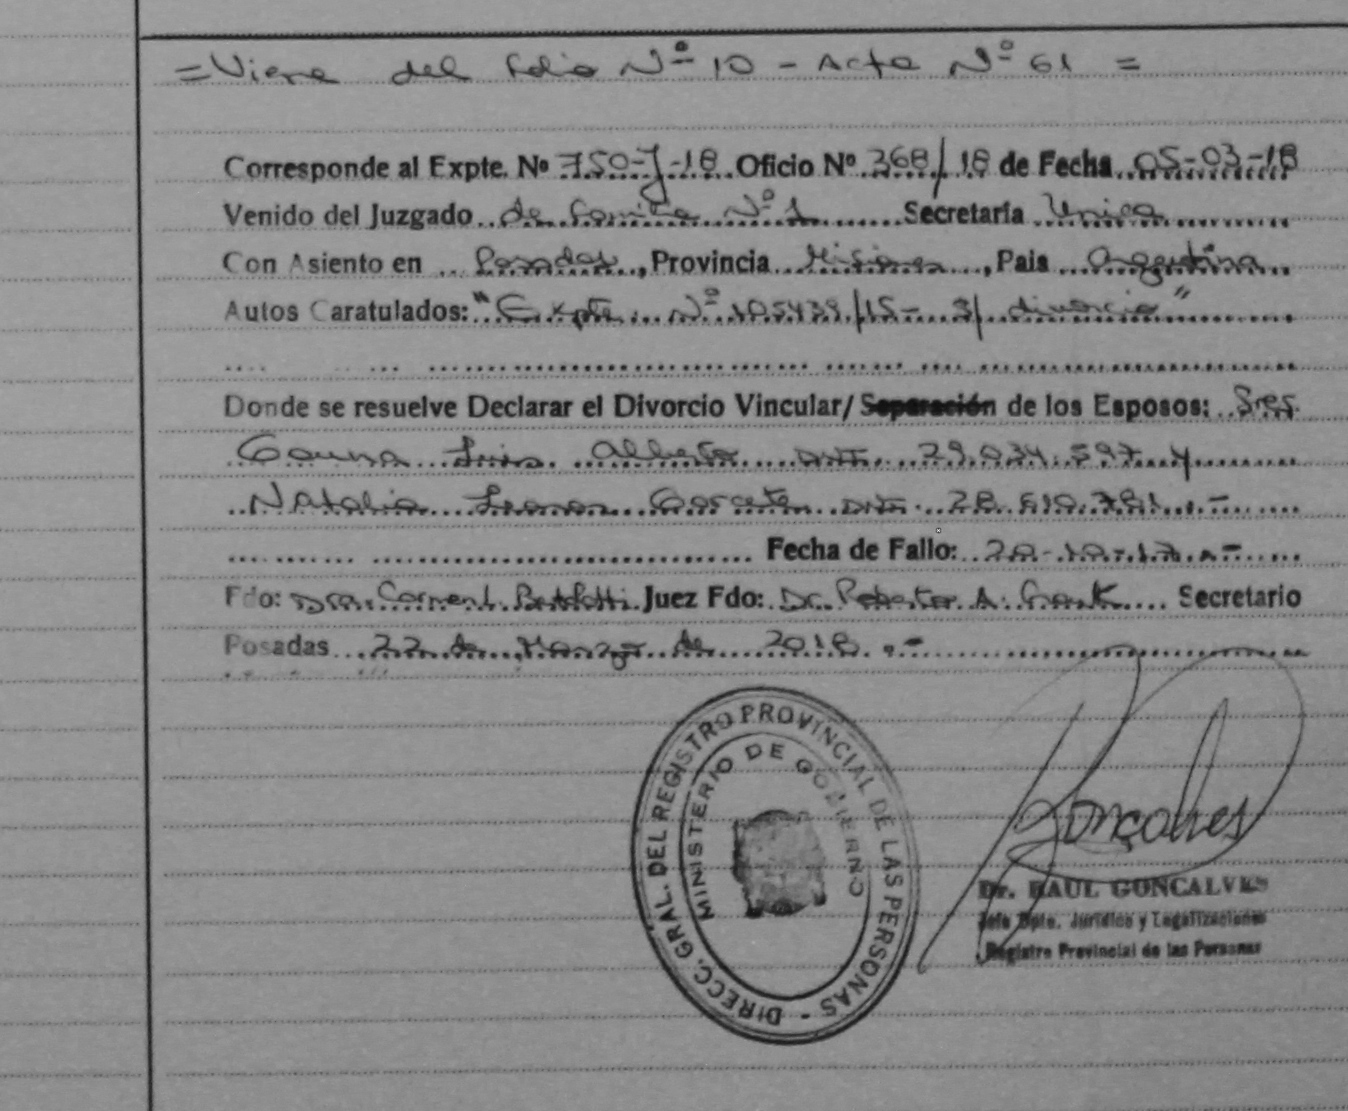 = Viene del folio Nº 10 - Acta Nº 61 =
Corresponde al Expte. Nº 750-J-18 Oficio Nº 368/18 de Fecha 05-03-18
Venido del Juzgado de Familia Nº 1 Secretaría Unica
Con Asiento en Posadas, Provincia Misiones, Pais Argentina
Autos Caratulados: "Expte. Nº 105439/15- s/ divorcio"
Donde se resuelve Declarar el Divorcio Vincular/Separación de los Esposos: Sres.
Gauna Luis Alberto DNI. 29.034.597 y
Natalia Leonor DNI. 28.610.781.-
Fecha de Fallo: 20-10-17.-
Fdo: Dra. Carmen L. Juez Fdo: Dr. Roberto A. Secretario
Posadas 22 de Marzo de 2018.-
DIRECC. GRAL. DEL REGISTRO PROVINCIAL DE LAS PERSONAS -
MINISTERIO DE GOBIERNO
Gonçalves
Dr. RAUL GONCALVES
Jefe Dpto. Jurídico y Legalizaciones
Registro Provincial de las Personas